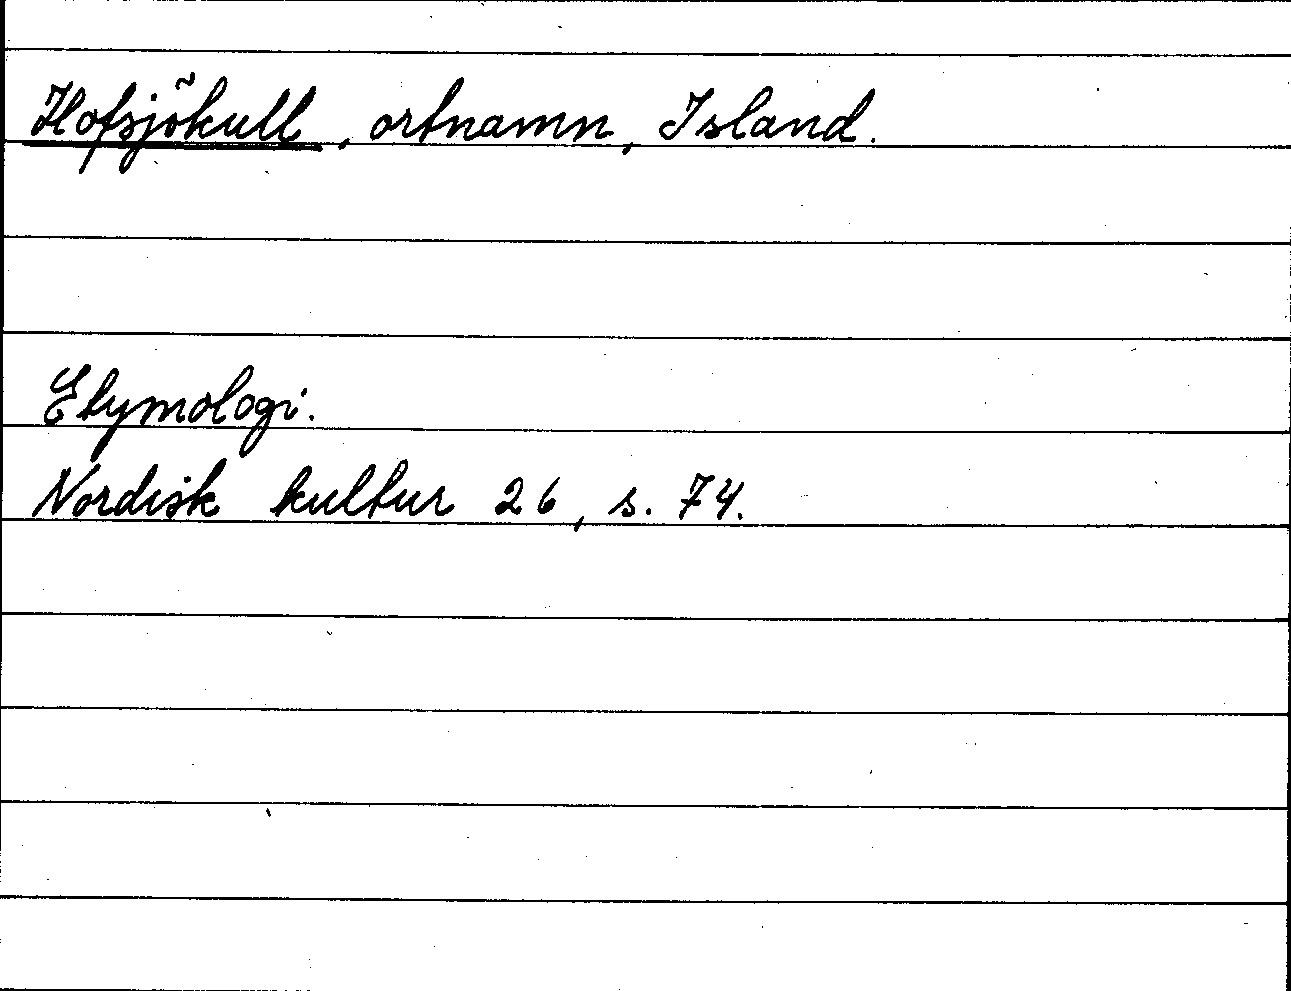 Hofsjökull, ortnamn, Island.
Etymologi.
Nordisk kultur 26, s. 74.